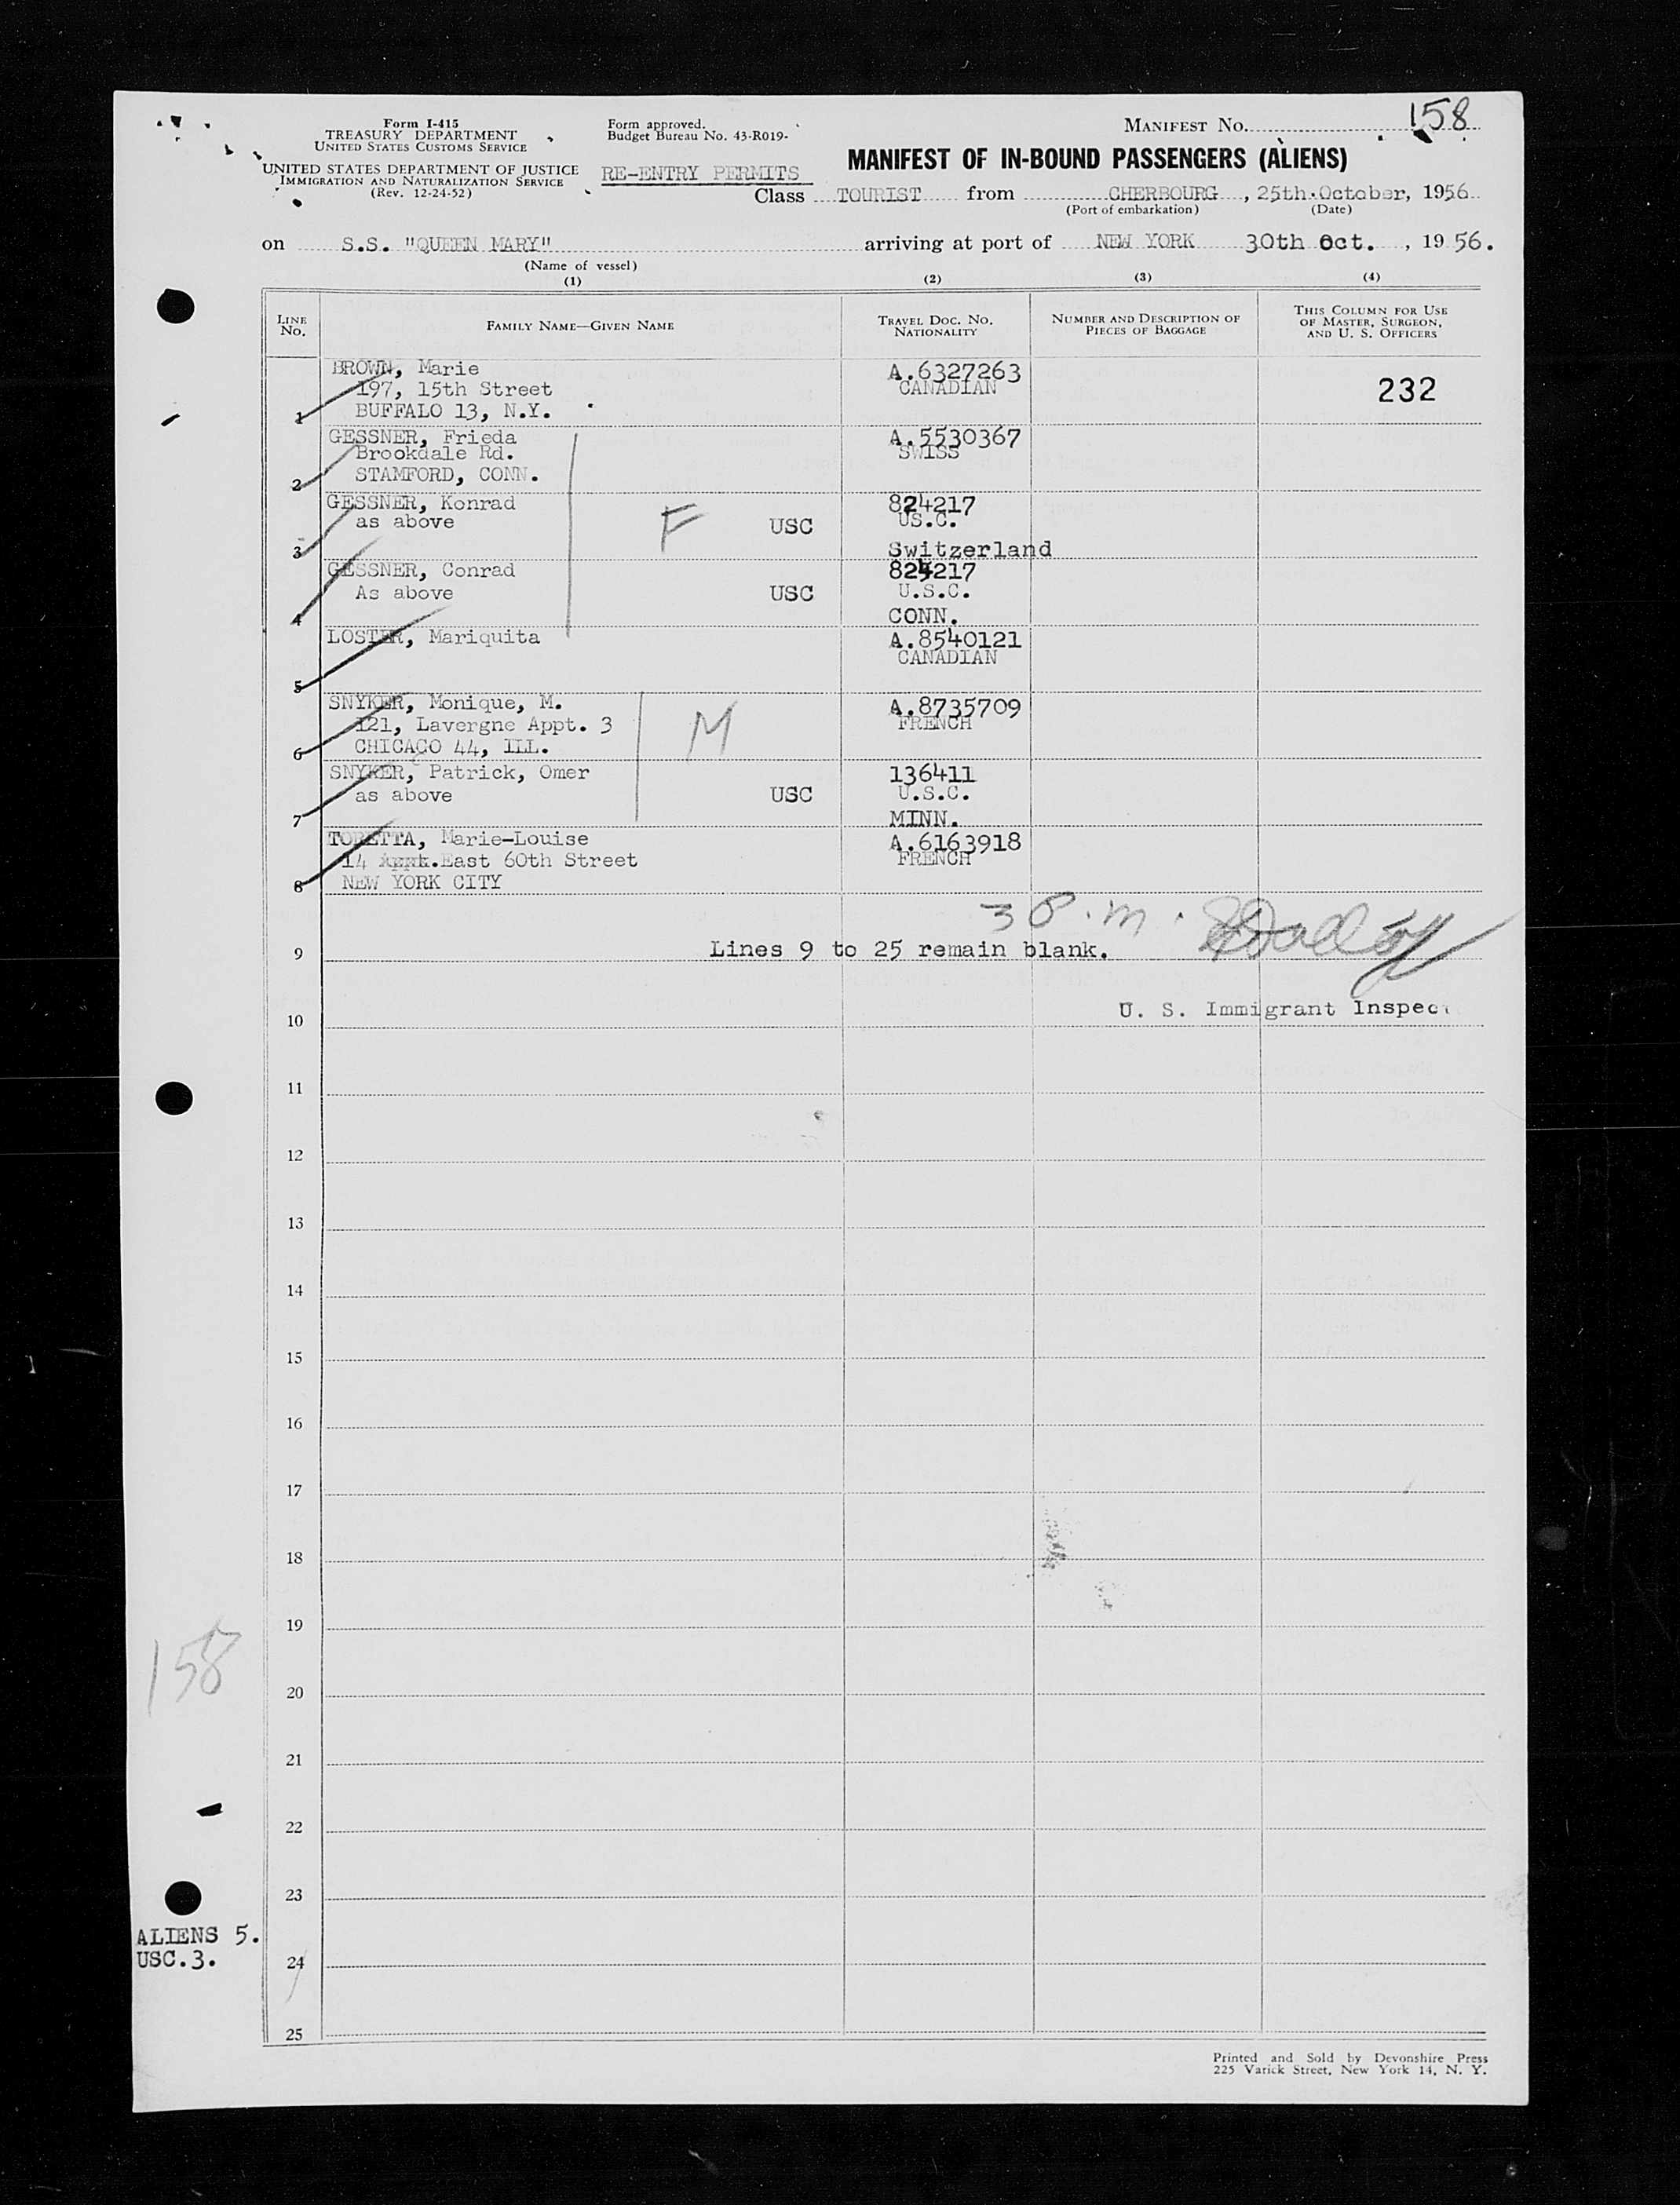 158
Form I-415
TREASURY DEPARTMENT
UNITED STATES CUSTOMS SERVICE
UNITED STATES DEPARTMENT OF JUSTICE
IMMIGRATION AND NATURALIZATION SERVICE
(Rev. 12-24-52)
Form approved.
Budget Bureau No. 43-R019-
MANIFEST NO.
RE-ENTRY PERMITS
MANIFEST OF IN-BOUND PASSENGERS (ALIENS)
Class TOURIST from CHERBOURG, 25th October, 1956
(Port of embarkation) (Date)
on S.S. "QUEEN MARY" arriving at port of NEW YORK 30th Oct., 1956.
(Name of vessel)
(1) (2) (3) (4)
LINE NO.
FAMILY NAME—GIVEN NAME
TRAVEL DOC. NO.
NATIONALITY
NUMBER AND DESCRIPTION OF
PIECES OF BAGGAGE
THIS COLUMN FOR USE
OF MASTER, SURGEON,
AND U. S. OFFICERS
BROWN, Marie A.6327263
197, 15th Street CANADIAN 232
1 BUFFALO 13, N.Y.
GESSNER, Frieda A.5530367
Brookdale Rd. SWISS
2 STAMFORD, CONN.
GESSNER, Konrad 824217
as above F USC US.C.
3 Switzerland
GESSNER, Conrad 824217
As above USC U.S.C.
4 CONN.
LOSTER, Mariquita A.8540121
CANADIAN
5
SNYKER, Monique, M. A.8735709
121, Lavergne Appt. 3 M FRENCH
6 CHICAGO 44, ILL.
SNYKER, Patrick, Omer 136411
as above USC U.S.C.
7 MINN.
TORETTA, Marie-Louise A.6163918
14 East 60th Street FRENCH
8 NEW YORK CITY
9 Lines 9 to 25 remain blank.
U. S. Immigrant Inspec
10
11
12
13
14
15
16
17
18
19
158
20
21
22
23
ALIENS 5.
USC.3.
24
25
Printed and Sold by Devonshire Press
225 Varick Street, New York 14, N. Y.